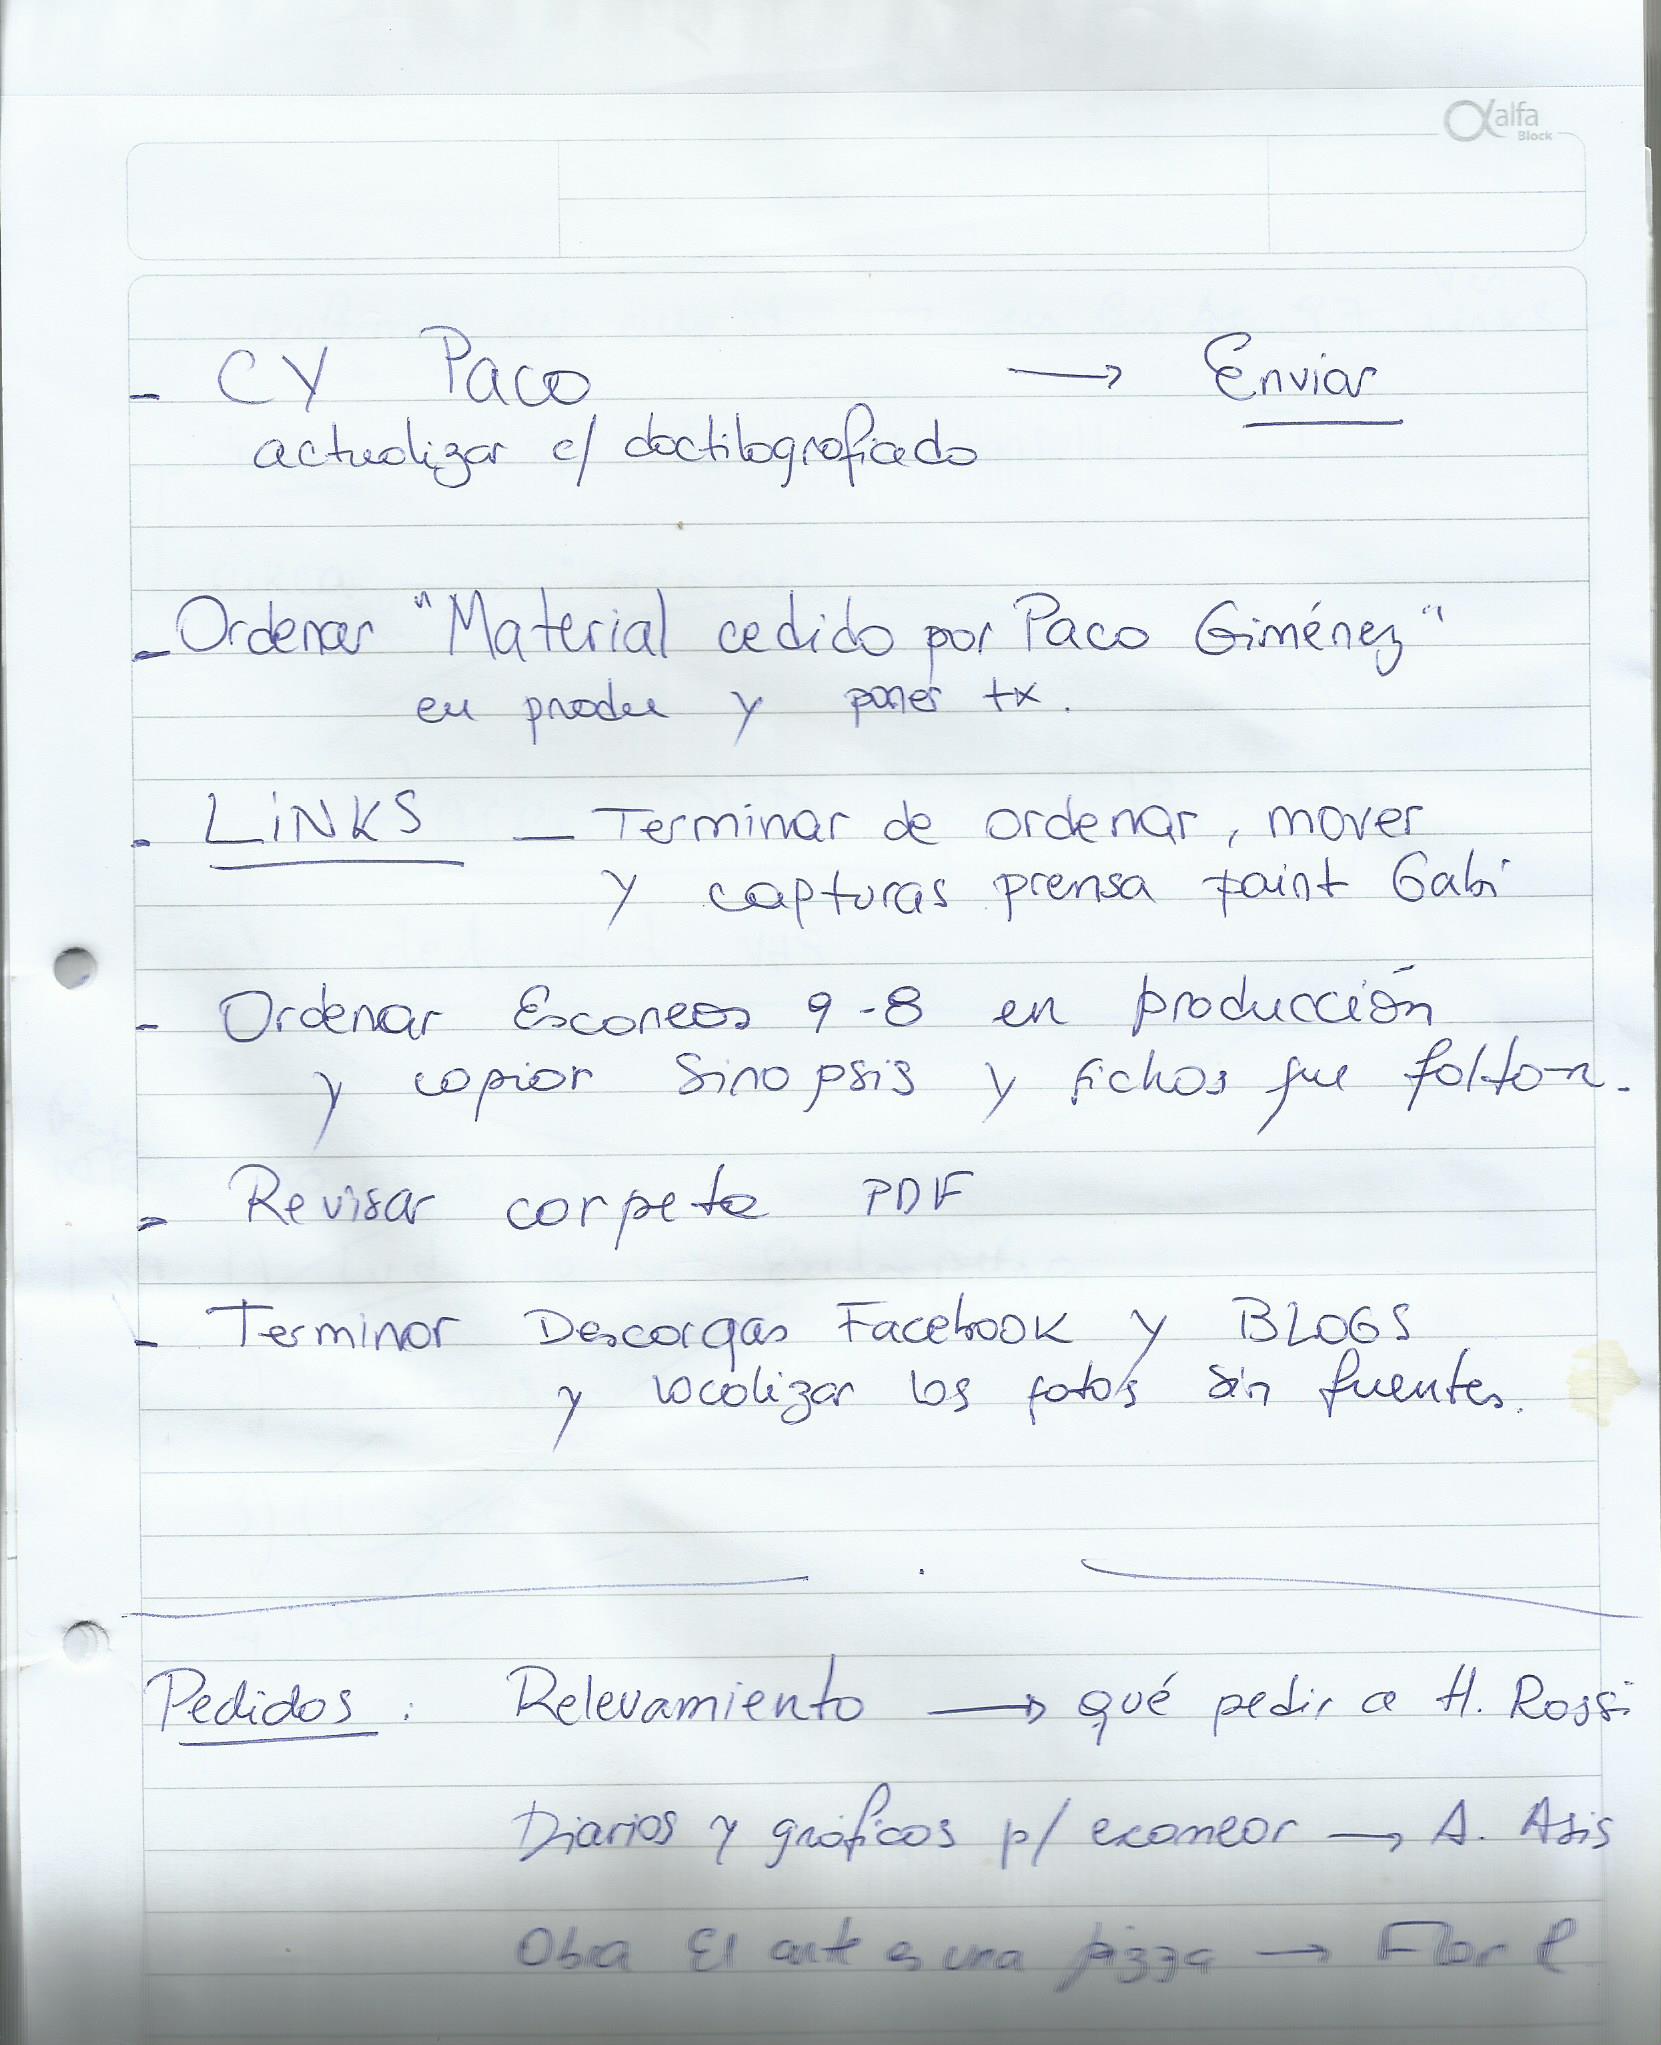 alfa
Block
- CV Paco → Enviar
actualizar c/ dactilografiado
- Ordenar "Material cedido por Paco Giménez"
en produ y poner tx.
- LiNKS — Terminar de ordenar, mover
y capturas prensa paint Gabi
- Ordenar Escaneos 9-8 en producción
y copiar Sinopsis y fichas que faltan.
- Revisar carpeta PDF
- Terminar Descargas Facebook y BLOGS
y localizar las fotos sin fuentes.
Pedidos : Relevamiento → qué pedir a H. Rossi
Diarios y gráficos p/ escanear → A. Asis
Obra El arte es una pizza → Flor